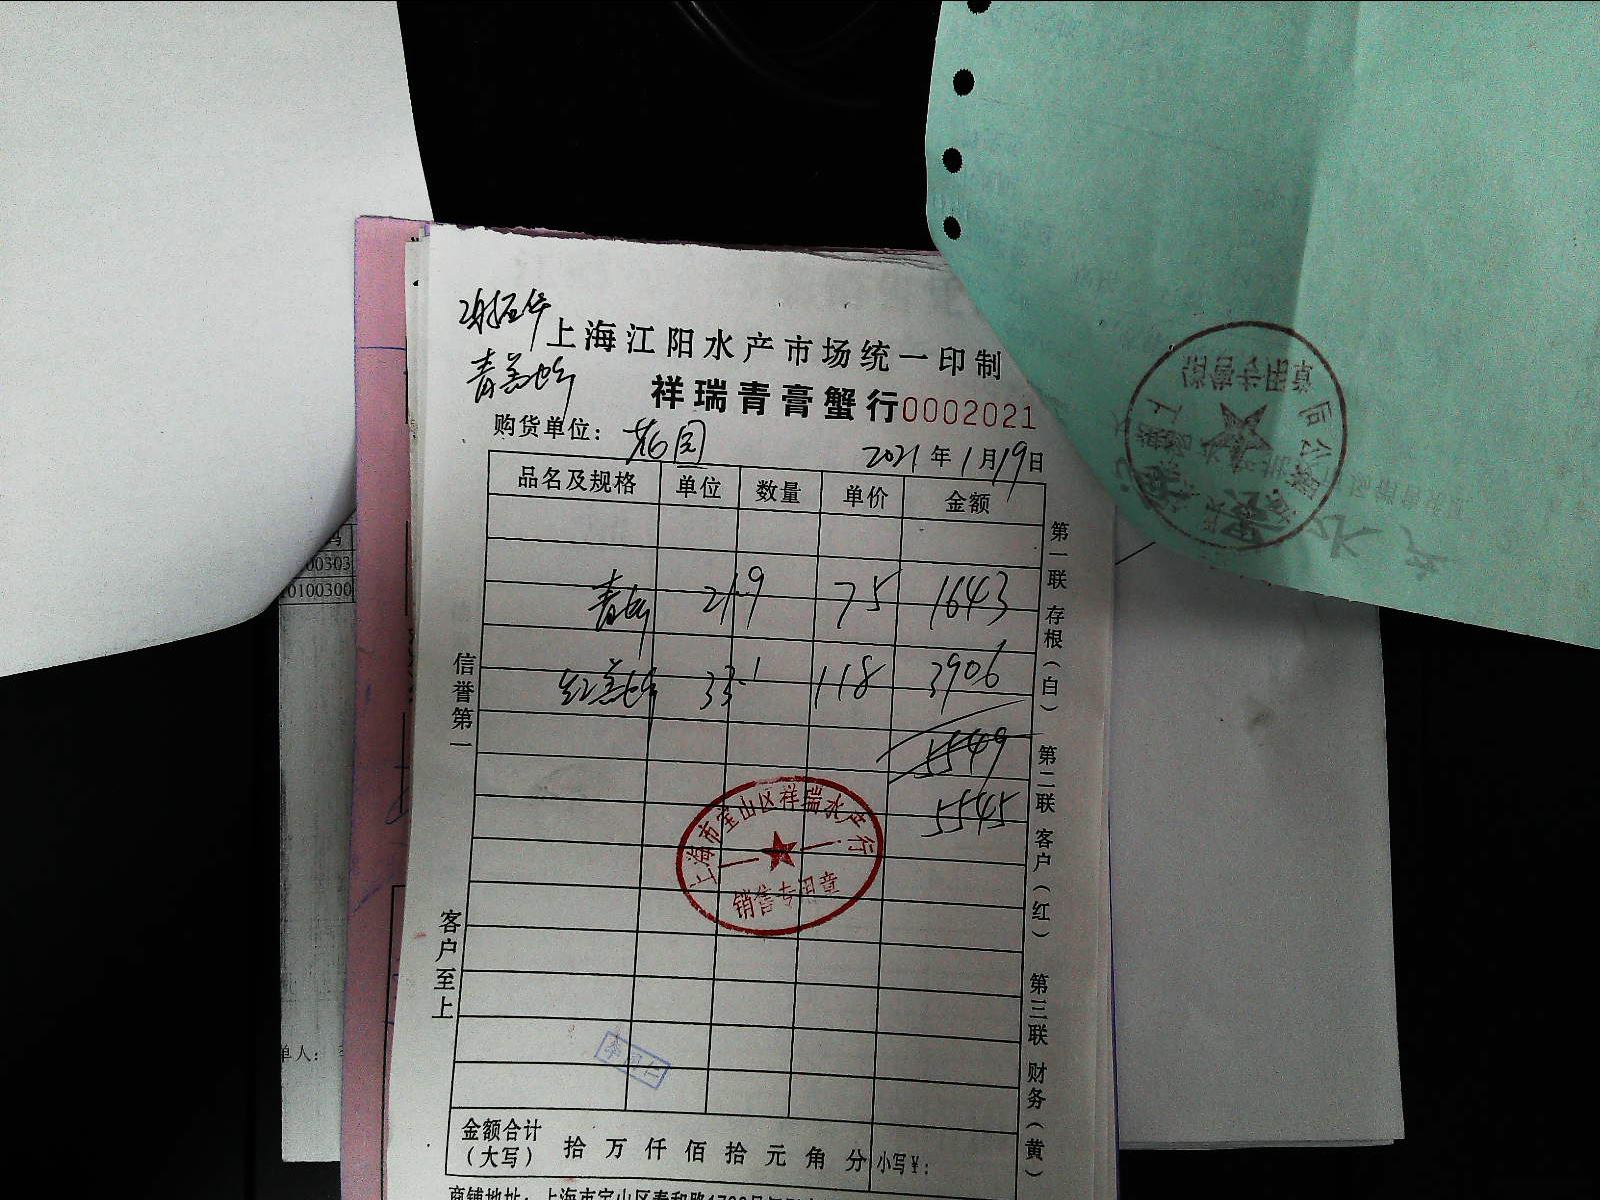 上海江阳水产市场统一印制
祥瑞青膏蟹行0002021
购货单位：花园
2021年1月19日
品名及规格 单位 数量 单价 金额
青 21.9 75 1643
红膏 33.1 118 3906
5549
5545
上海市宝山区祥瑞水产行
销售专用章
金额合计
（大写） 拾 万 仟 佰 拾 元 角 分 小写¥：
信誉第一
客户至上
第一联 存根（白） 第二联 客户（红） 第三联 财务（黄）
00303
0100300
单人：